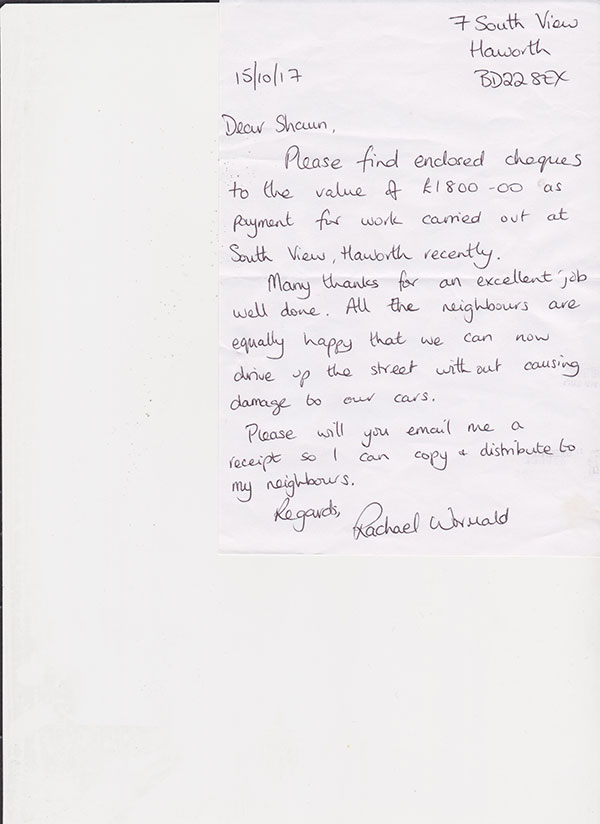 7 South View
Haworth
15/10/17
BD22 8EX
Dear Shaun,
Please find enclosed cheques
to the value of £1800-00 as
payment for work carried out at
South View, Haworth recently.
Many thanks for an excellent job
well done. All the neighbours are
equally happy that we can now
drive up the street without causing
damage to our cars.
Please will you email me a
receipt so I can copy + distribute to
my neighbours.
Regards,
Rachael Wormald